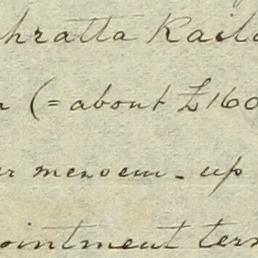 hratta Rail
(= about £160
mensem - up
ointment ter